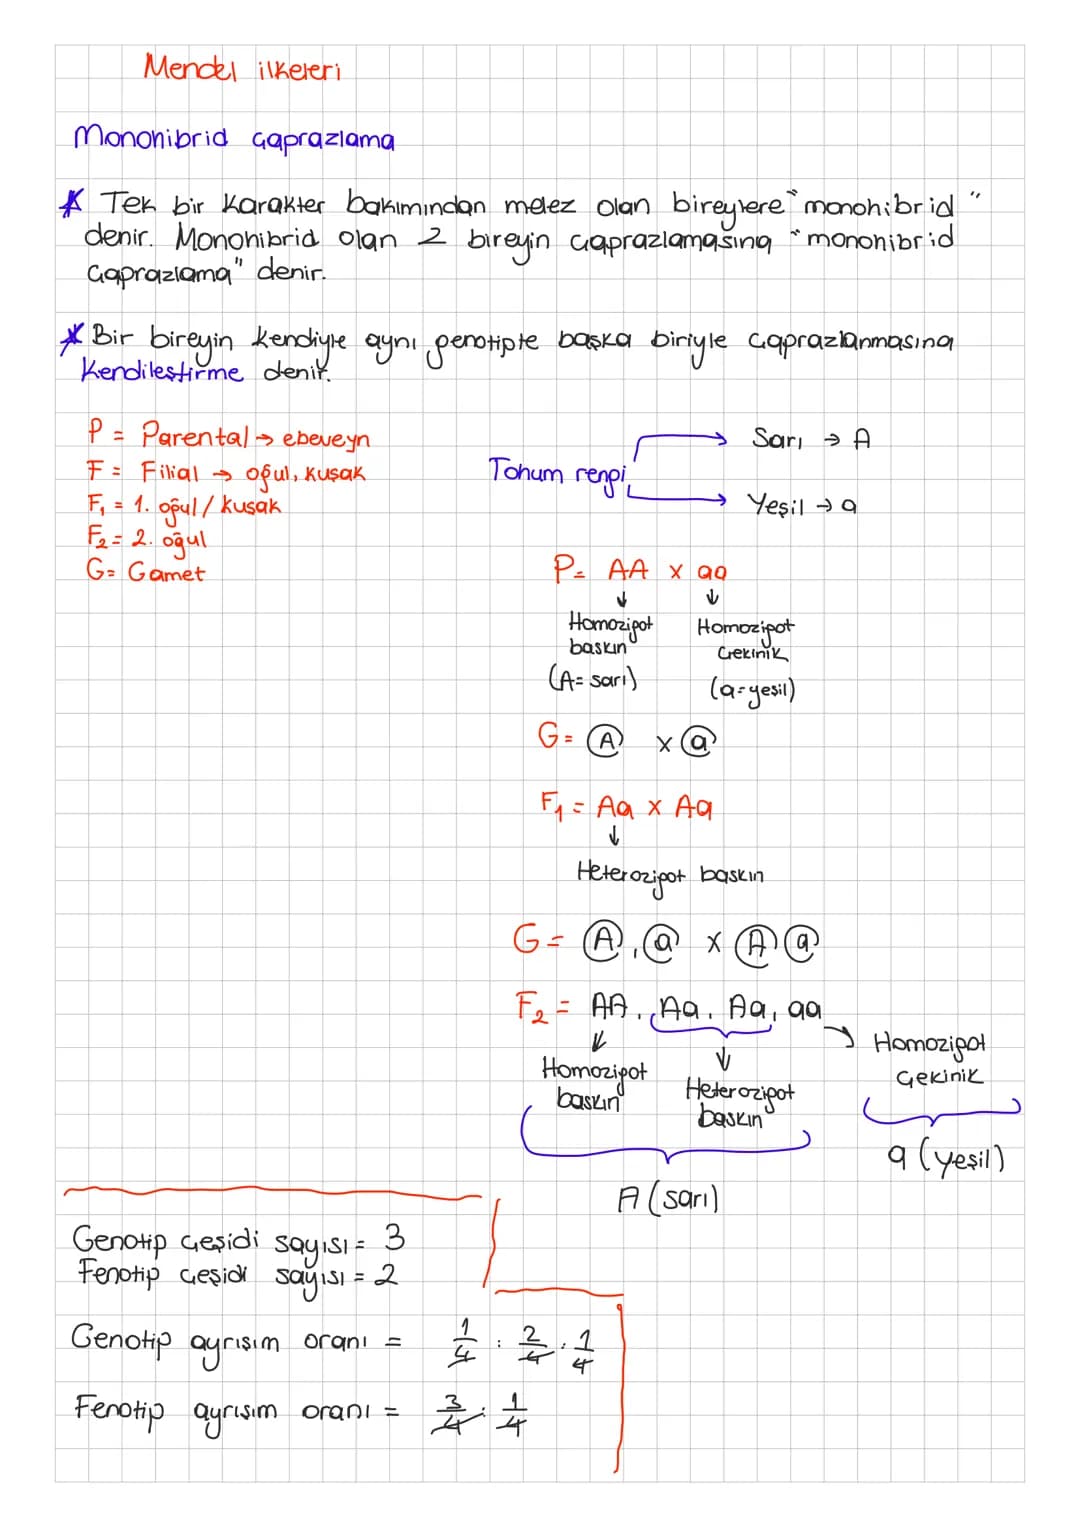 Mendel ilkeleri
Monohibrid çaprazlama
* Tek bir karakter bakımından melez olan bireylere "monohibrid"
denir. Monohibrid olan 2 bireyin çaprazlamasına "monohibrid
çaprazlama" denir.
* Bir bireyin kendiyle aynı genotipte başka biriyle çaprazlanmasına
kendileştirme denir.
P = Parental → ebeveyn
F = Filial → oğul, kuşak
F₁ = 1. oğul / kuşak
F₂ = 2. oğul
G = Gamet
Tohum rengi
Sarı → A
Yeşil → a
P = AA x aa
↓ ↓
Homozigot Homozigot
baskın çekinik
(A = sarı) (a = yeşil)
G = A x a
F₁ = Aa x Aa
↓
Heterozigot baskın
G = A, a x A a
F₂ = AA, Aa, Aa, aa
Homozigot
baskın
Heterozigot
baskın
Homozigot
çekinik
A (sarı)
a (yeşil)
Genotip çeşidi sayısı = 3
Fenotip çeşidi sayısı = 2
Genotip ayrışım oranı = 1/4 : 2/4 : 1/4
Fenotip ayrışım oranı = 3/4 : 1/4